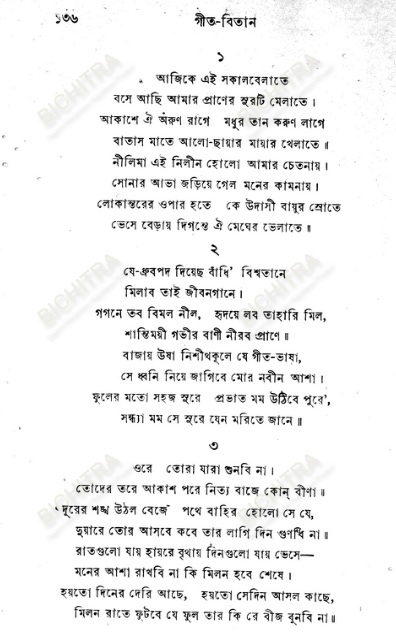 ১৩৬ গীত-বিতান
১
আজিকে এই সকালবেলাতে
বসে আছি আমার প্রাণের সুরটি মেলাতে।
আকাশে ঐ অরুণ রাগে মধুর তান করুণ লাগে
বাতাস মাতে আলো-ছায়ার মায়ার খেলাতে॥
নীলিমা এই নিলীন হোলো আমার চেতনায়।
সোনার আভা জড়িয়ে গেল মনের কামনায়।
লোকান্তরের ওপার হতে কে উদাসী বায়ুর স্রোতে
ভেসে বেড়ায় দিগন্তে ঐ মেঘের ভেলাতে॥
২
যে-ধ্রুবপদ দিয়েছ বাঁধি' বিশ্বতানে
মিলাব তাই জীবনগানে।
গগনে তব বিমল নীল, হৃদয়ে লব তাহারি মিল,
শান্তিময়ী গভীর বাণী নীরব প্রাণে॥
বাজায় উষা নিশীথকূলে যে গীত-ভাষা,
সে ধ্বনি নিয়ে জাগিবে মোর নবীন আশা।
ফুলের মতো সহজ সুরে প্রভাত মম উঠিবে পুরে',
সন্ধ্যা মম সে সুরে যেন মরিতে জানে॥
৩
ওরে তোরা যারা শুনবি না।
তোদের তরে আকাশ পরে নিত্য বাজে কোন্ বীণা॥
দূরের শঙ্খ উঠল বেজে পথে বাহির হোলো সে যে,
দুয়ারে তোর আসবে কবে তার লাগি দিন গুণবি না।
রাতগুলো যায় হায়রে বৃথায় দিনগুলো যায় ভেসে—
মনের আশা রাখবি না কি মিলন হবে শেষে।
হয়তো দিনের দেরি আছে, হয়তো সেদিন আসল কাছে,
মিলন রাতে ফুটবে যে ফুল তার কি রে বীজ বুনবি না॥
BICHITRA
BICHITRA
BICHITRA
BICHITRA
BICHITRA
BICHITRA